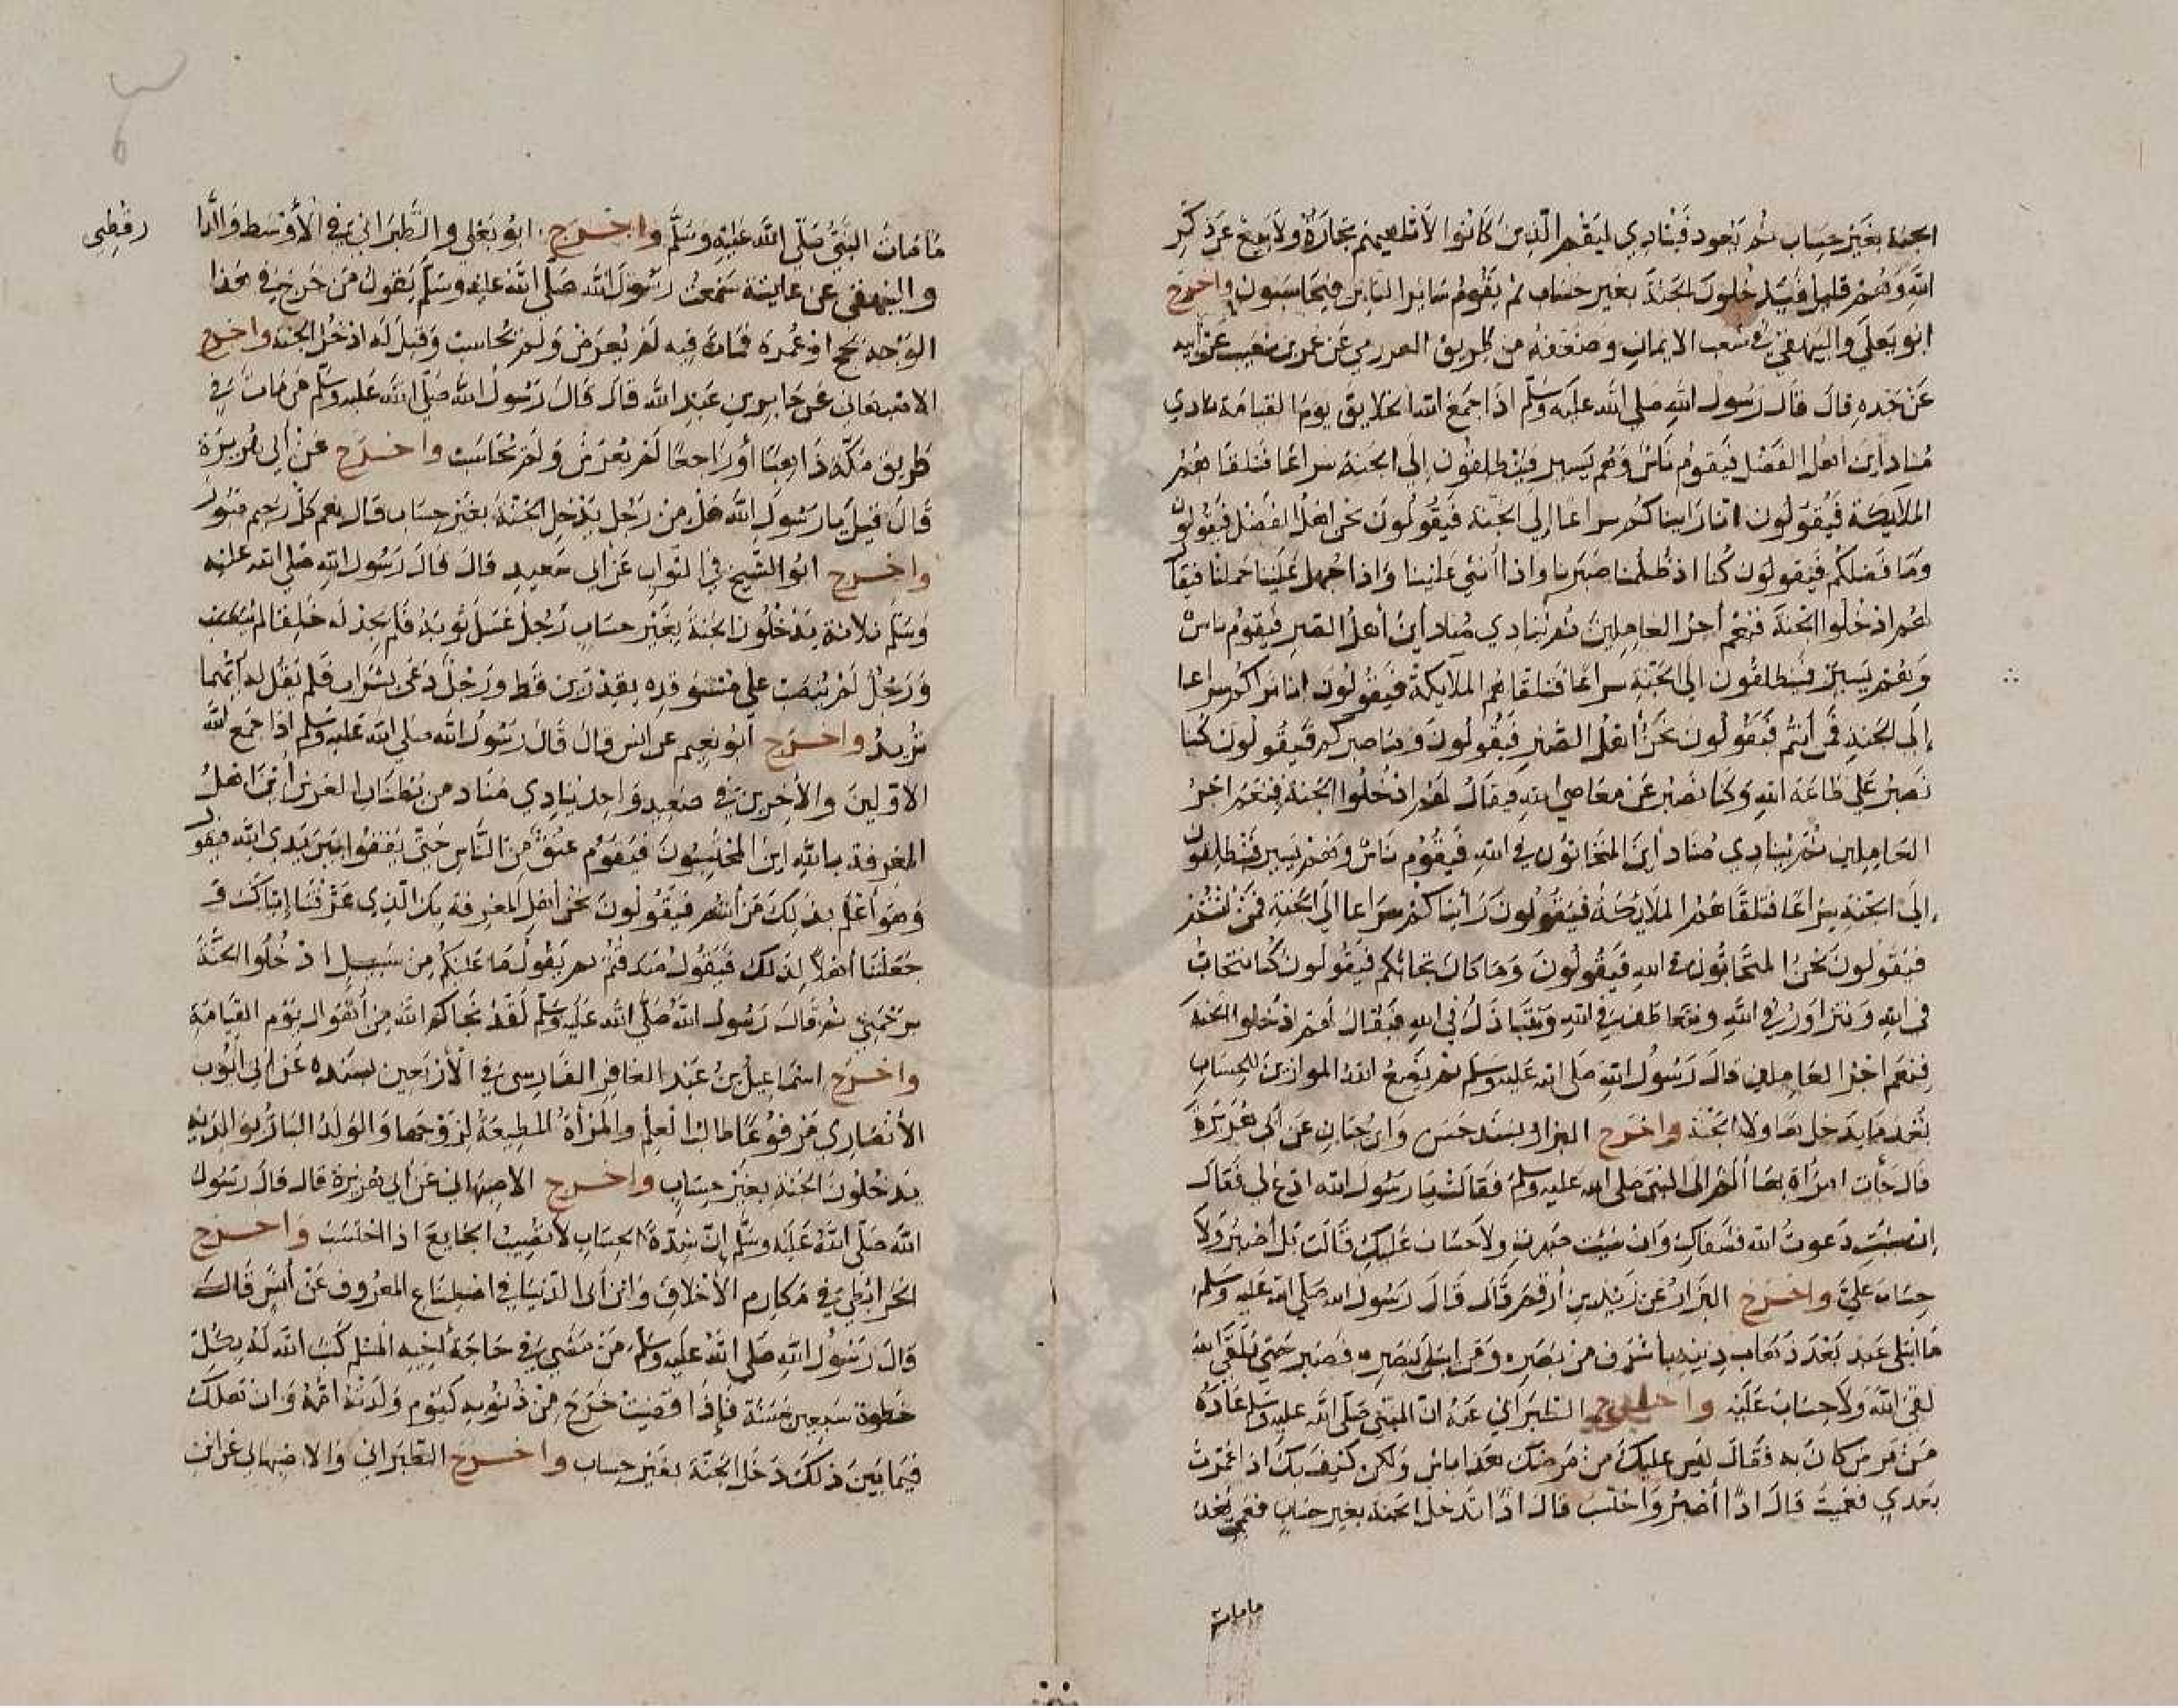 الجنة بغير حساب ثم يعود فينادي ليقم الذين كانوا لا تلهيهم تجارة ولا بيع عن ذكر
الله وهم قليل فيدخلون الجنة بغير حساب ثم يقوم سائر الناس فيحاسبون واخرج
ابو يعلى والبيهقي في شعب الايمان وضعفه من طريق العرزمي عن عمرو بن شعيب عن ابيه
عن جده قال قال رسول الله صلى الله عليه وسلم اذا جمع الله الخلايق يوم القيامة نادي
مناد اين اهل الفضل فيقوم ناس وهم يسير فينطلقون الى الجنة سراعا فتلقاهم
الملايكة فيقولون انا رايناكم سراعا الى الجنة فيقولون نحن اهل الفضل فيقولون
وما فضلكم فيقولون كنا اذ ظلمنا صبرنا واذا أسئ علينا واذا جهل علينا حملنا فيقال
لهم ادخلوا الجنة فنعم أجر العاملين ثم ينادي مناد أين أهل الصبر فيقوم ناس
وهم يسير فينطلقون الى الجنة سراعا فتلقاهم الملايكة فيقولون انا نراكم سراعا
إلى الجنة فمن أنتم فيقولون نحن أهل الصبر فيقولون وما صبركم فيقولون كنا
نصبر على طاعة الله وكنا نصبر عن معاصي الله فيقال لهم ادخلوا الجنة فنعم اجر
العاملين ثم ينادي مناد أين المتحابون في الله فيقوم ناس وهم يسير فينطلقون
إلى الجنة سراعا فتلقاهم الملايكة فيقولون رأيناكم سراعا الى الجنة فمن انتم
فيقولون نحن المتحابون في الله فيقولون وما كان تحابكم فيقولون كنا نتحاب
في الله ونتزاور في الله ونتعاطف في الله ونتباذل في الله فيقال لهم ادخلوا الجنة
فنعم اجر العاملين قال رسول الله صلى الله عليه وسلم ثم يضع الله الموازين للحساب
بعد ما يدخل هاولا الجنة واخرج البزار بسند حسن وابن حبان عن أبي هريرة
قال جأت امرأة بها ألم الى النبي صلى الله عليه وسلم فقالت يا رسول الله ادع لي فقال
إن شئت دعوت الله فشفاك وان شئت صبرت ولا حساب عليك قالت بل أصبر ولا
حساب علي واخرج البزار عن زيد بن أرقم قال قال رسول الله صلى الله عليه وسلم
ما ابتلى عبد بعد ذهاب دينه بأشد من بصره ومن ابتلى ببصره فصبر حتى يلقى الله
لقي الله ولا حساب عليه واخرج الطبراني عنه ان النبي صلى الله عليه وسلم عاده
من مرض كان به فقال ليس عليك من مرضك هذا باس ولكن كيف بك اذا عمرت
بعدي فعميت قال اذا أصبر واحتسب قال اذا تدخل الجنة بغير حساب فعمي بعد
مامات
ما مات النبي صلى الله عليه وسلم واخرج ابو يعلى والطبراني في الأوسط والدا
رقطني
والبيهقي عن عايشة سمعت رسول الله صلى الله عليه وسلم يقول من خرج في هذا
الوجه بحج او عمرة فمات فيه لم يعرض ولم يحاسب وقيل له ادخل الجنة واخرج
الاصبهاني عن جابر بن عبد الله قال قال رسول الله صلى الله عليه وسلم من مات في
طريق مكة ذاهبا أو راجعا لم يعرض ولم يحاسب واخرج عن أبي هريرة
قال قيل يا رسول الله هل من رجل يدخل الجنة بغير حساب قال نعم كل رحيم صبور
واخرج ابو الشيخ في الثواب عن أبي سعيد قال قال رسول الله صلى الله عليه
وسلم ثلاثة يدخلون الجنة بغير حساب رجل غسل ثوبه فلم يجد له خلفا
ورجل لم ينصب على مستوقده بقدرين قط ورجل دعى بشراب فلم يقل له ايهما
تريد واخرج أبو نعيم عن انس قال قال رسول الله صلى الله عليه وسلم اذا جمع الله
الاولين والآخرين في صعيد واحد ينادي مناد من بطنان العرش أين اهل
المعرفة بالله اين المحسنون فيقوم عنق من الناس حتى يقفوا بين يدي الله فيقول
وهو أعلم بذلك من أنتم فيقولون نحن أهل المعرفة بك الذي عرفتنا إياك و
جعلتنا أهلا لذلك فيقول صدقتم ثم يقول ما عليكم من سبيل ادخلوا الجنة
برحمتي ثم قال رسول الله صلى الله عليه وسلم لقد نجاكم الله من أهوال يوم القيامة
واخرج اسماعيل بن عبد الغافر الفارسي في الأربعين بسنده عن ابي ايوب
الأنصاري مرفوعا طالب العلم والمرأة المطيعة لزوجها والولد البار بوالديه
يدخلون الجنة بغير حساب واخرج الاصبهاني عن أبي هريرة قال قال رسول
الله صلى الله عليه وسلم إن شدة الحساب لا تصيب الجايع اذا احتسب واخرج
الخرائطي في مكارم الأخلاق وابن أبي الدنيا في اصطناع المعروف عن أنس قال
قال رسول الله صلى الله عليه وسلم من مشي في حاجة أخيه المسلم كتب الله له بكل
خطوة سبعين حسنة فإذا قضيت خرج من ذنوبه كيوم ولدته امه وان هلك
فيما بين ذلك دخل الجنة بغير حساب واخرج الطبراني والاصبهاني عن ابن